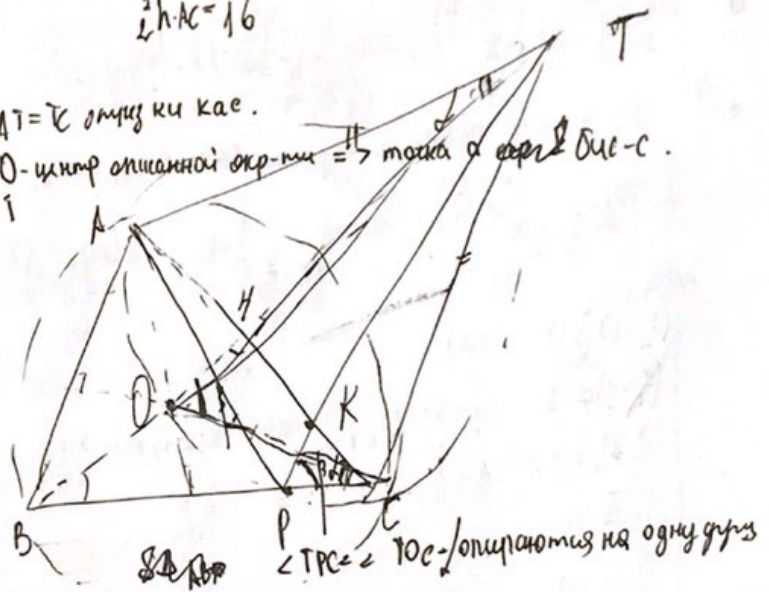 ½h·AC = 16
AT = TC отрезки кас.
O-центр описанной окр-ти => точка бис-с.
T
A
H
O
K
B
P
C
<TPC = < TOC - опираются на одну дугу